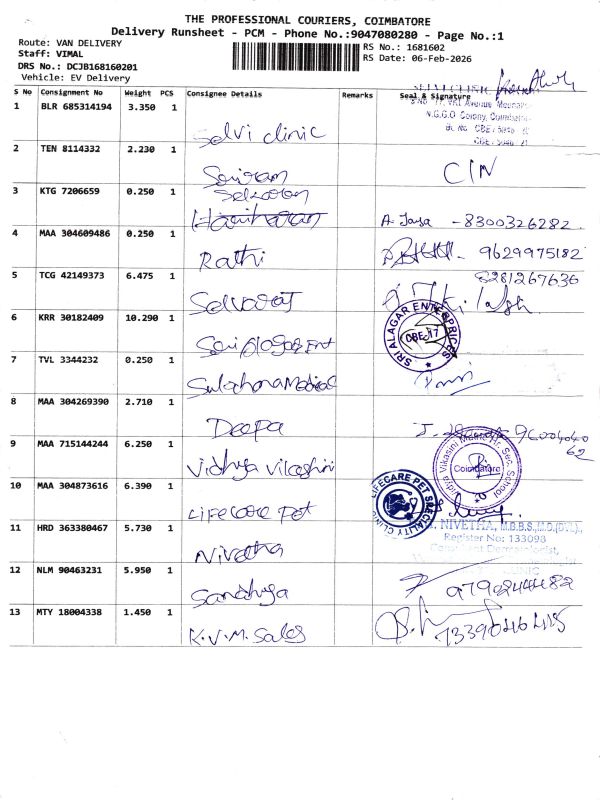 THE PROFESSIONAL COURIERS, COIMBATORE
Delivery Runsheet - PCM - Phone No.:9047080280 - Page No.:1
Route: VAN DELIVERY
Staff: VIMAL
DRS No.: DCJB168160201
Vehicle: EV Delivery
RS No.: 1681602
RS Date: 06-Feb-2026
S No Consignment No Weight PCS Consignee Details Remarks Seal & Signature
1 BLR 685314194 3.350 1 Selvi clinic
N.G.G.O Colony, Coimbatore
2 TEN 8114332 2.230 1 Sriram CIN
3 KTG 7206659 0.250 1 A. Jaya - 8300326282
4 MAA 304609486 0.250 1 Rathi 9629975182
8281267636
5 TCG 42149373 6.475 1 Selvaraj
6 KRR 30182409 10.290 1 Sri Alagar Ent
SRI ALAGAR ENTERPRICES
CBE-17
7 TVL 3344232 0.250 1 Sulochana Medical
8 MAA 304269390 2.710 1 Deepa
9 MAA 715144244 6.250 1 Vidhya Vikashini
Vidya Vikasini Matric Hr. Sec. School
Coimbatore
10 MAA 304873616 6.390 1 Lifecare Pet
LIFECARE PET SPECIALITY CLINIC
11 HRD 363380467 5.730 1 Nivetha
NIVETHA, M.B.B.S.,M.D.(DVL).,
Register No: 133098
Consultant Dermatologist,
CLINIC
12 NLM 90463231 5.950 1 Sandhya 9790244482
13 MTY 18004338 1.450 1 K.V.M. Sales